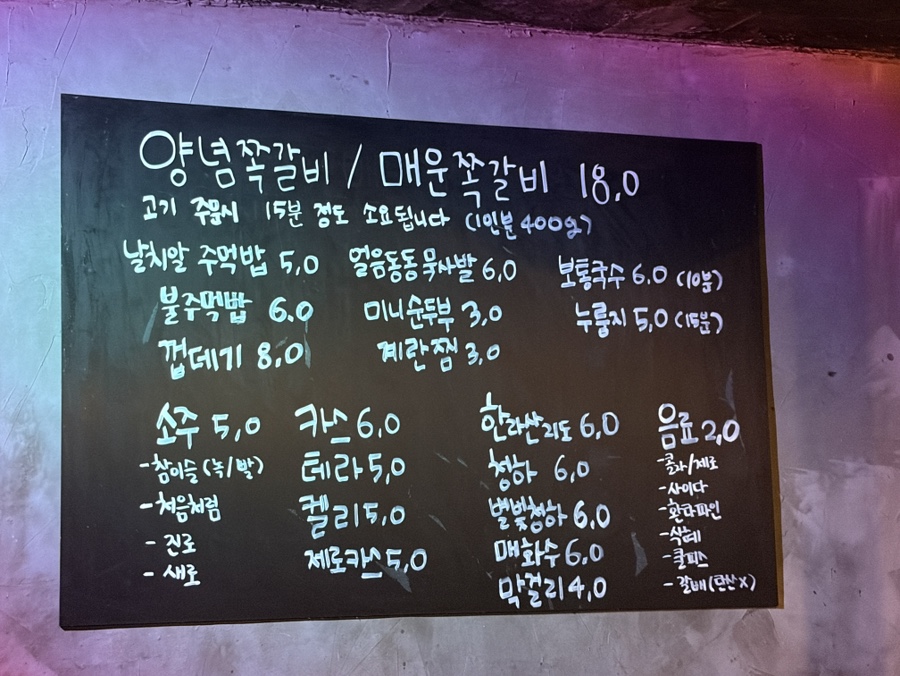 양념쪽갈비 / 매운쪽갈비 18,0
고기 주문시 15분 정도 소요됩니다 (1인분 400g)
날치알 주먹밥 5,0 얼음동동묵사발 6,0 보통국수 6.0 (10분)
불주먹밥 6.0 미니순두부 3,0 누룽지 5,0 (15분)
껍데기 8,0 계란찜 3,0
소주 5,0 카스 6,0 한라산리도 6,0 음료 2,0
-참이슬 (녹/빨) 테라 5,0 청하 6,0 -콜라/제로
-처음처럼 켈리 5,0 별빛청하 6,0 -사이다
- 진로 제로카스 5,0 매화수 6,0 -환타파인
- 새로 막걸리 4,0 -식혜
-쿨피스
-갈배 (탄산X)